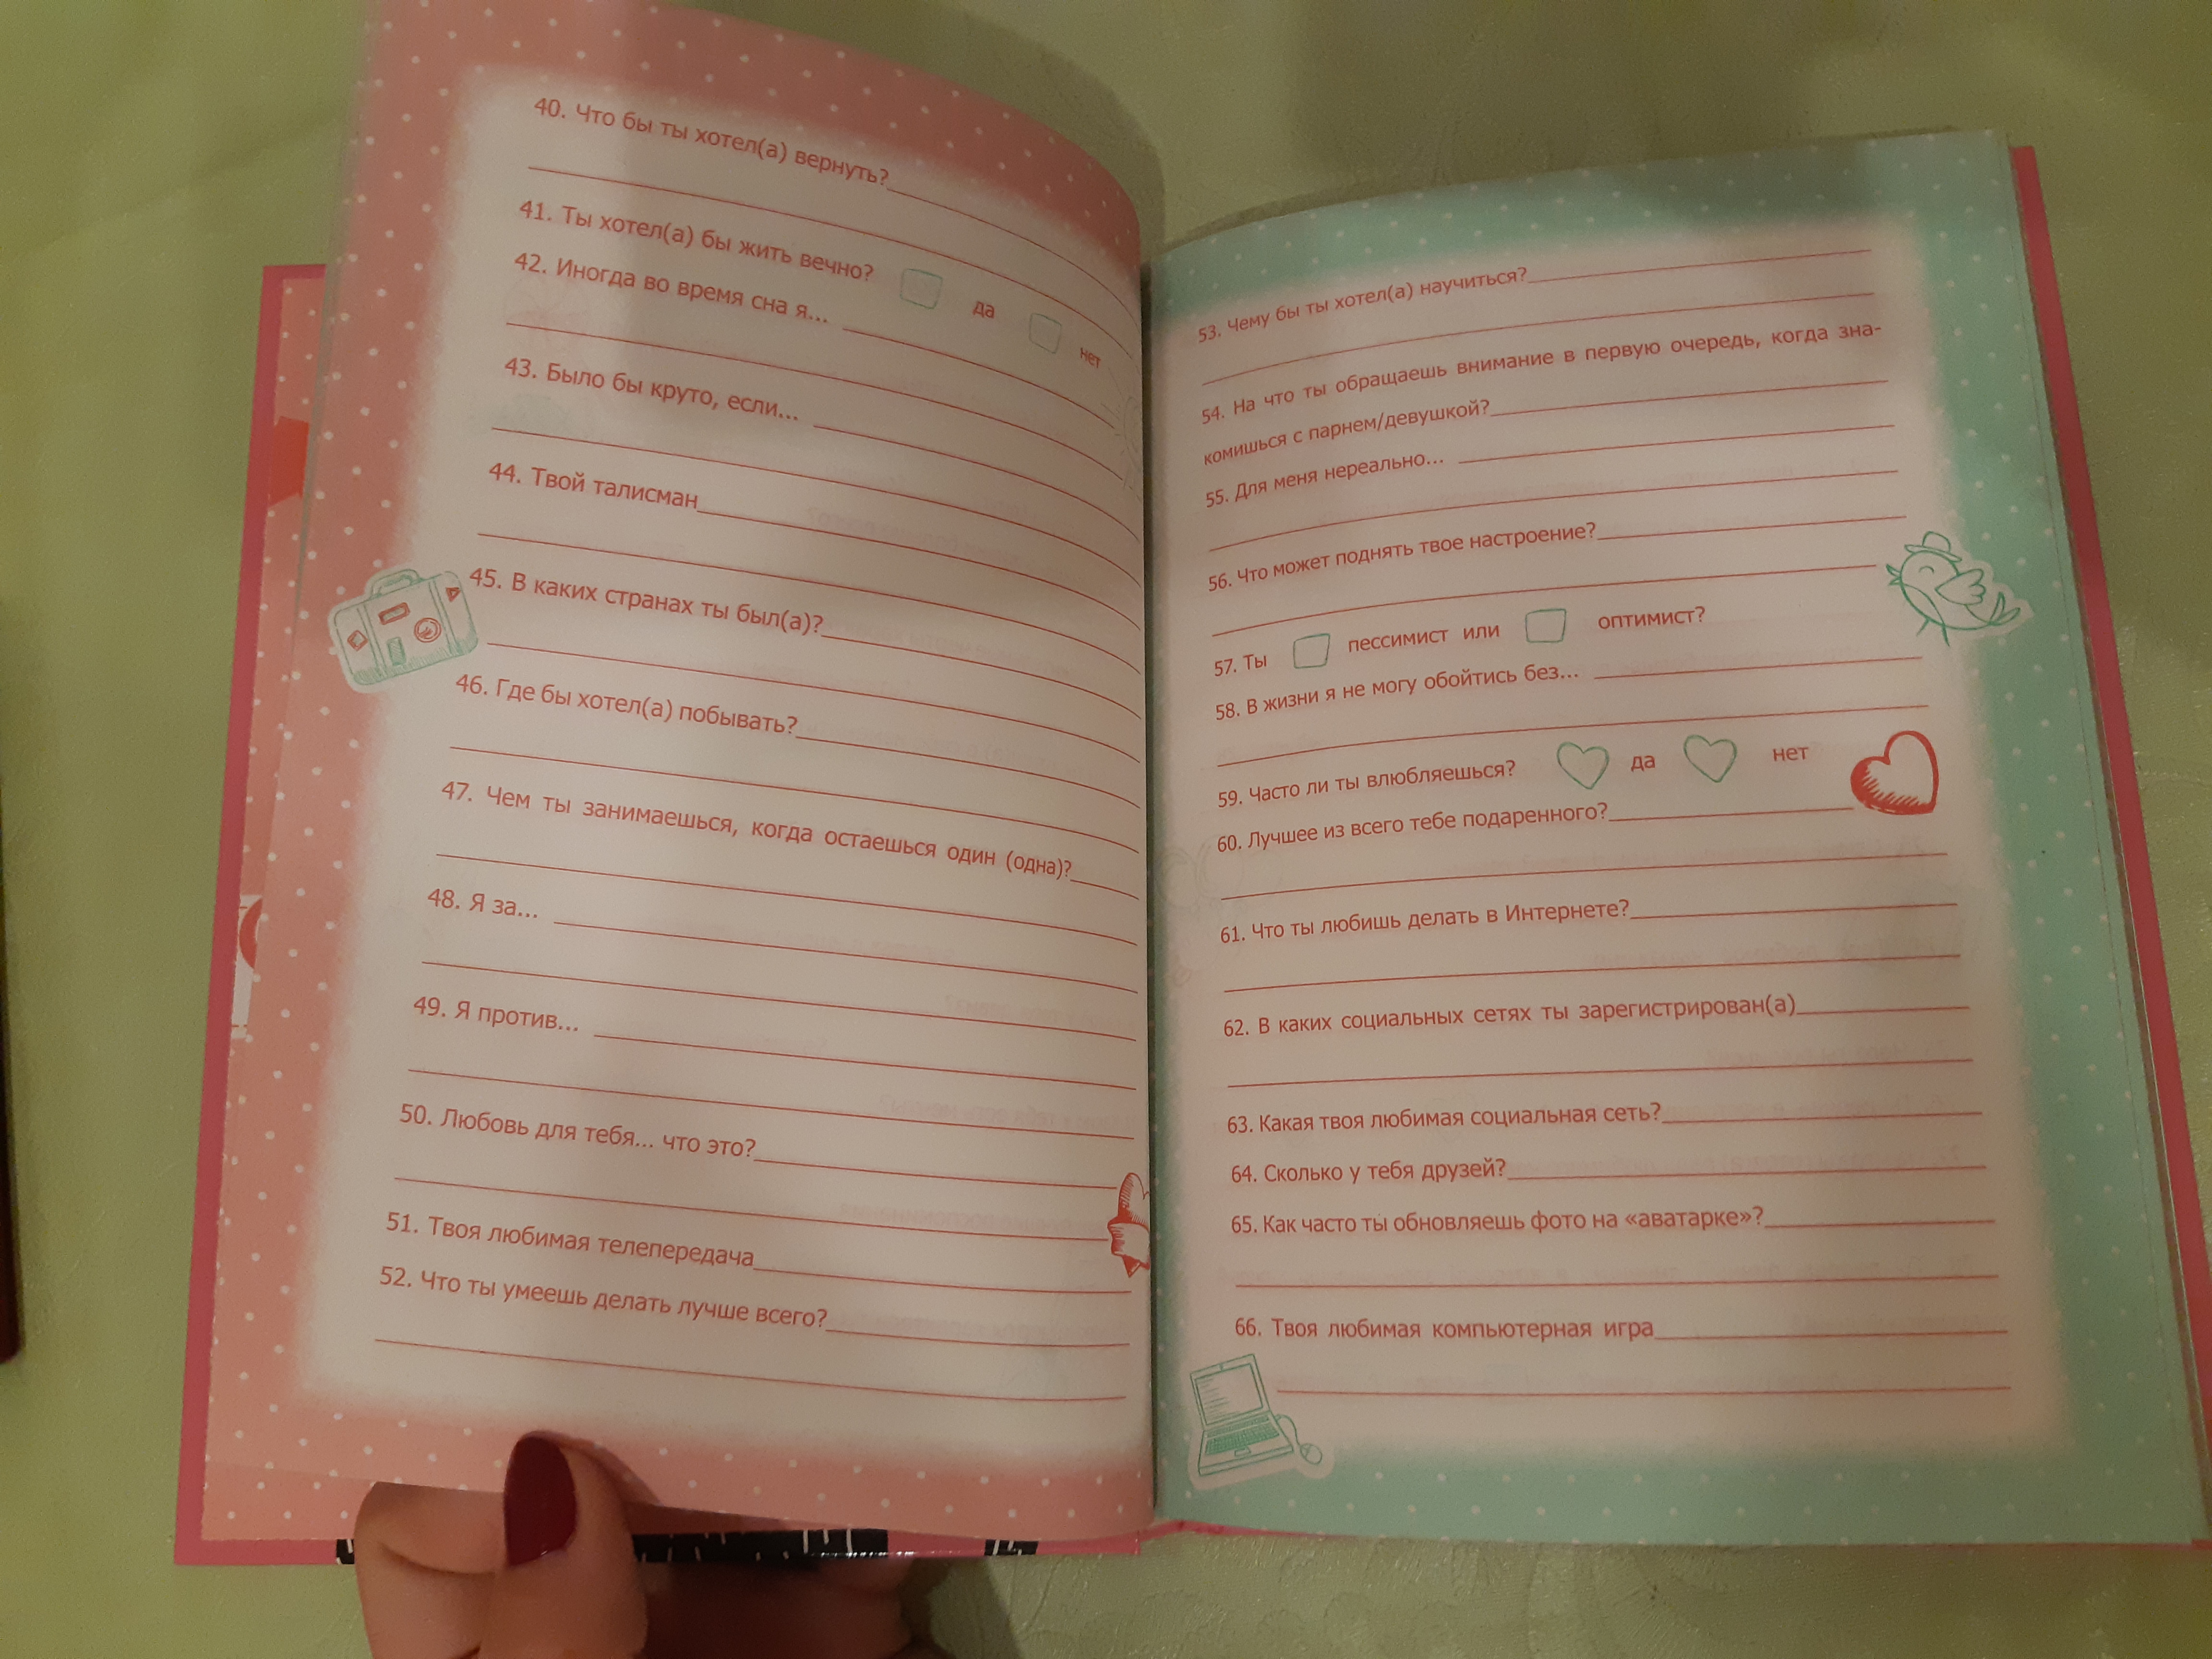 40. Что бы ты хотел(а) вернуть?
41. Ты хотел(а) бы жить вечно? да нет
42. Иногда во время сна я...
43. Было бы круто, если...
44. Твой талисман
45. В каких странах ты был(а)?
46. Где бы хотел(а) побывать?
47. Чем ты занимаешься, когда остаешься один (одна)?
48. Я за...
49. Я против...
50. Любовь для тебя... что это?
51. Твоя любимая телепередача
52. Что ты умеешь делать лучше всего?
53. Чему бы ты хотел(а) научиться?
54. На что ты обращаешь внимание в первую очередь, когда зна-
комишься с парнем/девушкой?
55. Для меня нереально...
56. Что может поднять твое настроение?
57. Ты пессимист или оптимист?
58. В жизни я не могу обойтись без...
59. Часто ли ты влюбляешься? да нет
60. Лучшее из всего тебе подаренного?
61. Что ты любишь делать в Интернете?
62. В каких социальных сетях ты зарегистрирован(а)
63. Какая твоя любимая социальная сеть?
64. Сколько у тебя друзей?
65. Как часто ты обновляешь фото на «аватарке»?
66. Твоя любимая компьютерная игра